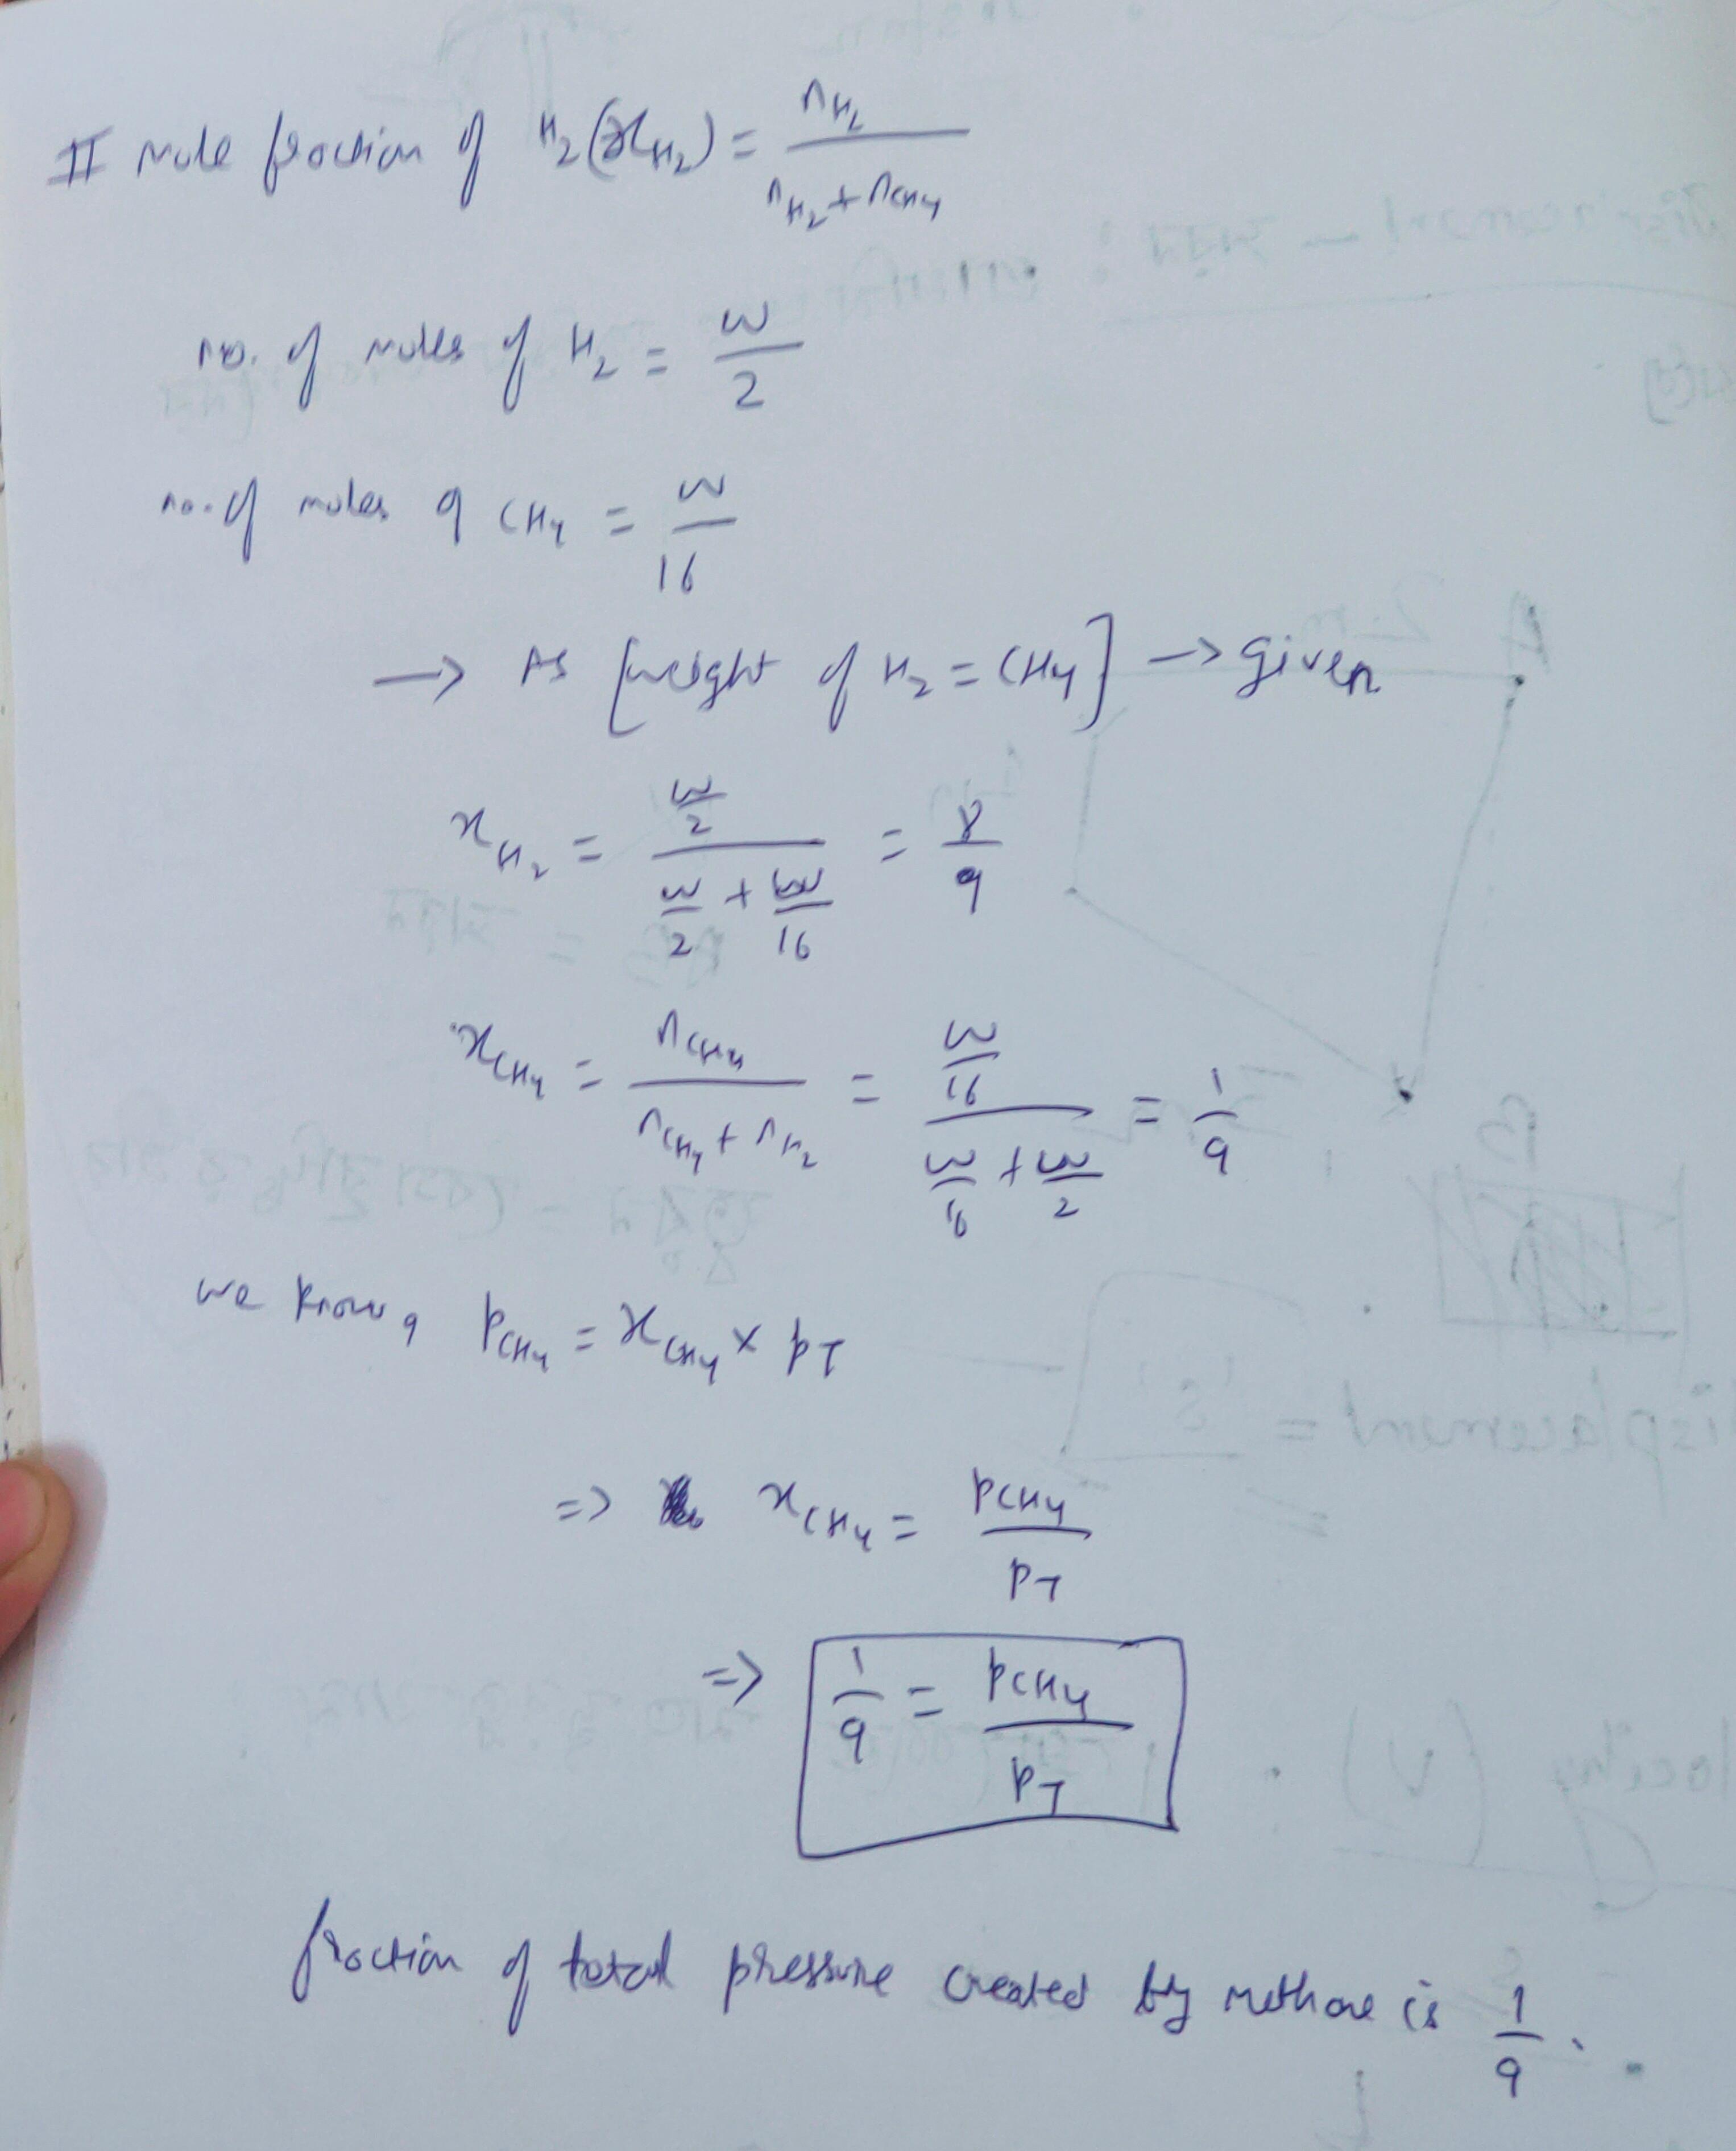 II Mole fraction of H₂(xH₂) = nH₂ / nH₂ + nCH₄
no. of moles of H₂ = w/2
no. of moles of CH₄ = w/16
→ As [weight of H₂ = CH₄] → given
xH₂ = (w/2) / (w/2 + w/16) = 8/9
xCH₄ = nCH₄ / nCH₄ + nH₂ = (w/16) / (w/16 + w/2) = 1/9
we know, pCH₄ = xCH₄ × pT
=> xCH₄ = pCH₄ / pT
=> 1/9 = pCH₄ / pT
fraction of total pressure created by methane is 1/9.